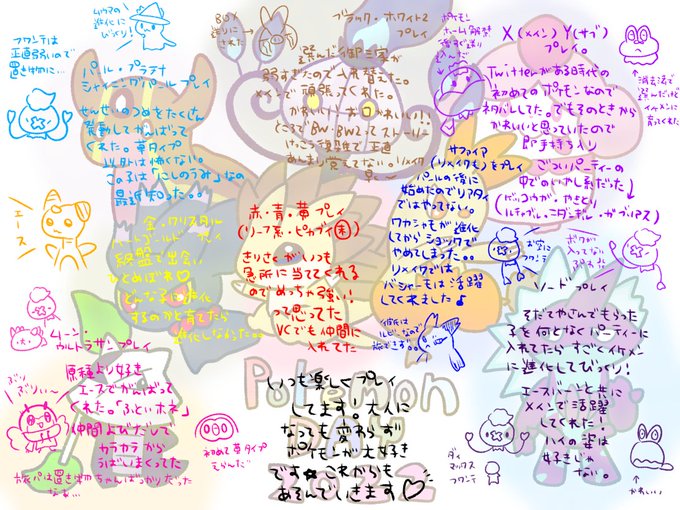 ムウマの
進化に
びっくり!
フワンテは
正直弱いので
置き物に…
パール・プラチナ
シャイニングパールプレイ
せんせいのつめをたくさん
発動してがんばって
くれた。草タイプ
以外は怖くない。
この子は「にしのうみ」なの
最近知った。。
エース
BOX
送りに
された
ブラック・ホワイト2
プレイ
選んだ御三家が
弱すぎたので入れ替えた。
メインで頑張ってくれた。
かわいい!!
ところでBW・BW2ってストーリー
けっこう複雑で正直
あんまり覚えてない。リメイク
ポケモン
ホーム解禁
X(メイン)Y(サブ)
プレイ。
Twitterがある時代の
初めてのポケモンなので
ネタバレしてた。でもそのときから
かわいいと思っていたので
即手持ち入り
ごついパーティーの
中でのいやし系だった
(ゲッコウガ・やきとり
ルチャブル・ニダンギル・ガブリアス)
消去法で
選んだけど
イケメンに
育ってくれた
サファイア
(リメイクも)をプレイ
パールの後に
始めたのでリアタイ
ではやってない。
ワカシャモが進化
してからショックで
やめてしまった。。
リメイクでは
バシャーモは活躍
してくれました♪
金・クリスタル
ハートゴールドプレイ
終盤で出会い
ひとめぼれ♡
どんな子に進化
するのかと育てたら
進化しなかった。。
赤・青・黄プレイ
(リーフ系・ピカブイ未)
きりさくがいつも
急所に当ててくれる
のでめっちゃ強い!!
って思ってた
VCでも仲間に
入れてた
お空に
フワンテ
ソードプレイ
そだてやさんでもらった
子を何となくパーティーに
入れてたらすごくイケメン
に進化してびっくり!
エースバーンと共に
メインで活躍
してくれた!
ハイな姿は
好きじゃ
ない。
ダイ
マックス
フワンテ
かわいい
ムーン・
ウルトラサンプレイ
原種より好き
エースでがんばって
くれた。「ふといホネ」
仲間よびだして
カラカラから
うばいまくってた
旅パは置き物ちゃんばっかりだった
なぁ…
初めて草タイプ
えらんだ
Pokémon
DAY
2022
いつも楽しくプレイ
してます!大人に
なっても変わらず
ポケモンが大好き
です☆これからも
あそんでいきます♡